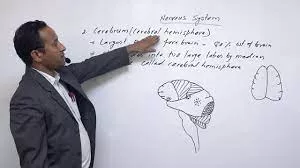 Nervous System
2. Cerebrum (cerebral hemisphere)
→ Largest fore brain - 80% of brain
into two large lobes by median
called cerebral hemisphere